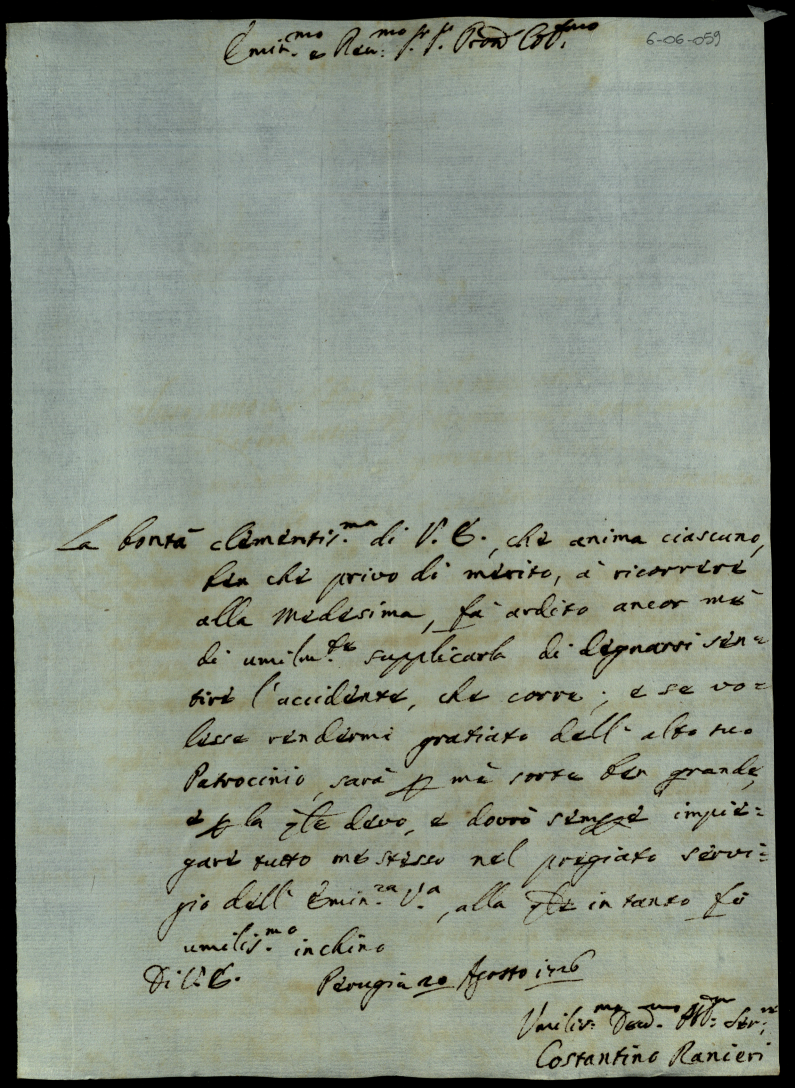 Emin.mo e Rev.mo Sr. Sr. Pron Col.mo
6-06-059
La bontà clementis.ma di V. E., che anima ciascuno,
ben che privo di merito, à ricorrere
alla Medesima, fà ardito ancor mè
di umilm.te supplicarla di degnarsi sen=
tire l'accidente, che corre; e se vo=
lesse rendermi gratiato dell'alto suo
Patrocinio, sarà p mè sorte ben grande,
e p la qle devo, e dovrò sempre impie=
gare tutto me stesso nel pregiato servi=
gio dell'Emin.za V.a, alla qle in tanto fò
umilis.mo inchino
Di V. E. Perugia 20 Agosto 1726
Umilis.mo Dev.mo Obb.mo Ser.re
Costantino Ranieri